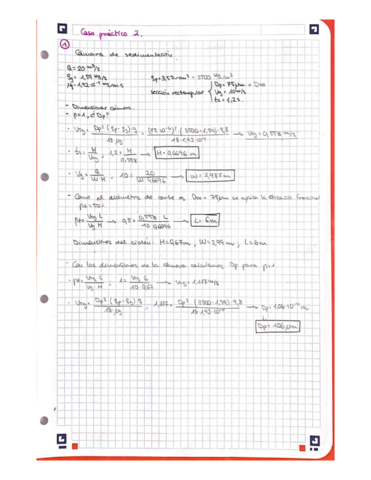 Caso práctico 2.
①
Cámara de sedimentación.
Q = 20 m³/s
ρp = 3,7 g/cm³ = 3700 kg/m³
ρg = 1,74 kg/m³
Dp = 75 μm = D50
μg = 1,92·10⁻⁵ kg/m·s
sección rectangular
Vg = 10 m/s
ts = 1,2 s.
- Dimensiones cámara.
- p=1, d Dp?
· Vsg = Dp² (ρp - ρg)·g / 18 μg = (75·10⁻⁶)² (3700-1,74)·9,8 / 18·1,92·10⁻⁵ → Vsg = 0,558 m/s
· ts = H / Vsg ; 1,2 = H / 0,558 → H = 0,6696 m
· Vg = Q / W H → 10 = 20 / W·0,6696 → W = 2,987 m
- Como el diámetro de corte es D50 = 75 μm se aplica la eficacia fraccional
p = 50%
p = Vsg L / Vg H → 0,5 = 0,558 · L / 10 · 0,6696 → L = 6 m
Dimensiones del ciclón: H = 0,67 m, W = 2,99 m, L = 6 m
- Con las dimensiones de la cámara calculamos Dp para p=1
· p = Vsg L / Vg H ; 1 = Vsg 6 / 10 0,67 → Vsg = 1,117 m/s
· Vsg = Dp² (ρp - ρg) g / 18 μg ; 1,117 = Dp² (3700-1,74) 9,8 / 18·1,92·10⁻⁵ → Dp = 1,06·10⁻⁴ m
Dp = 106 μm